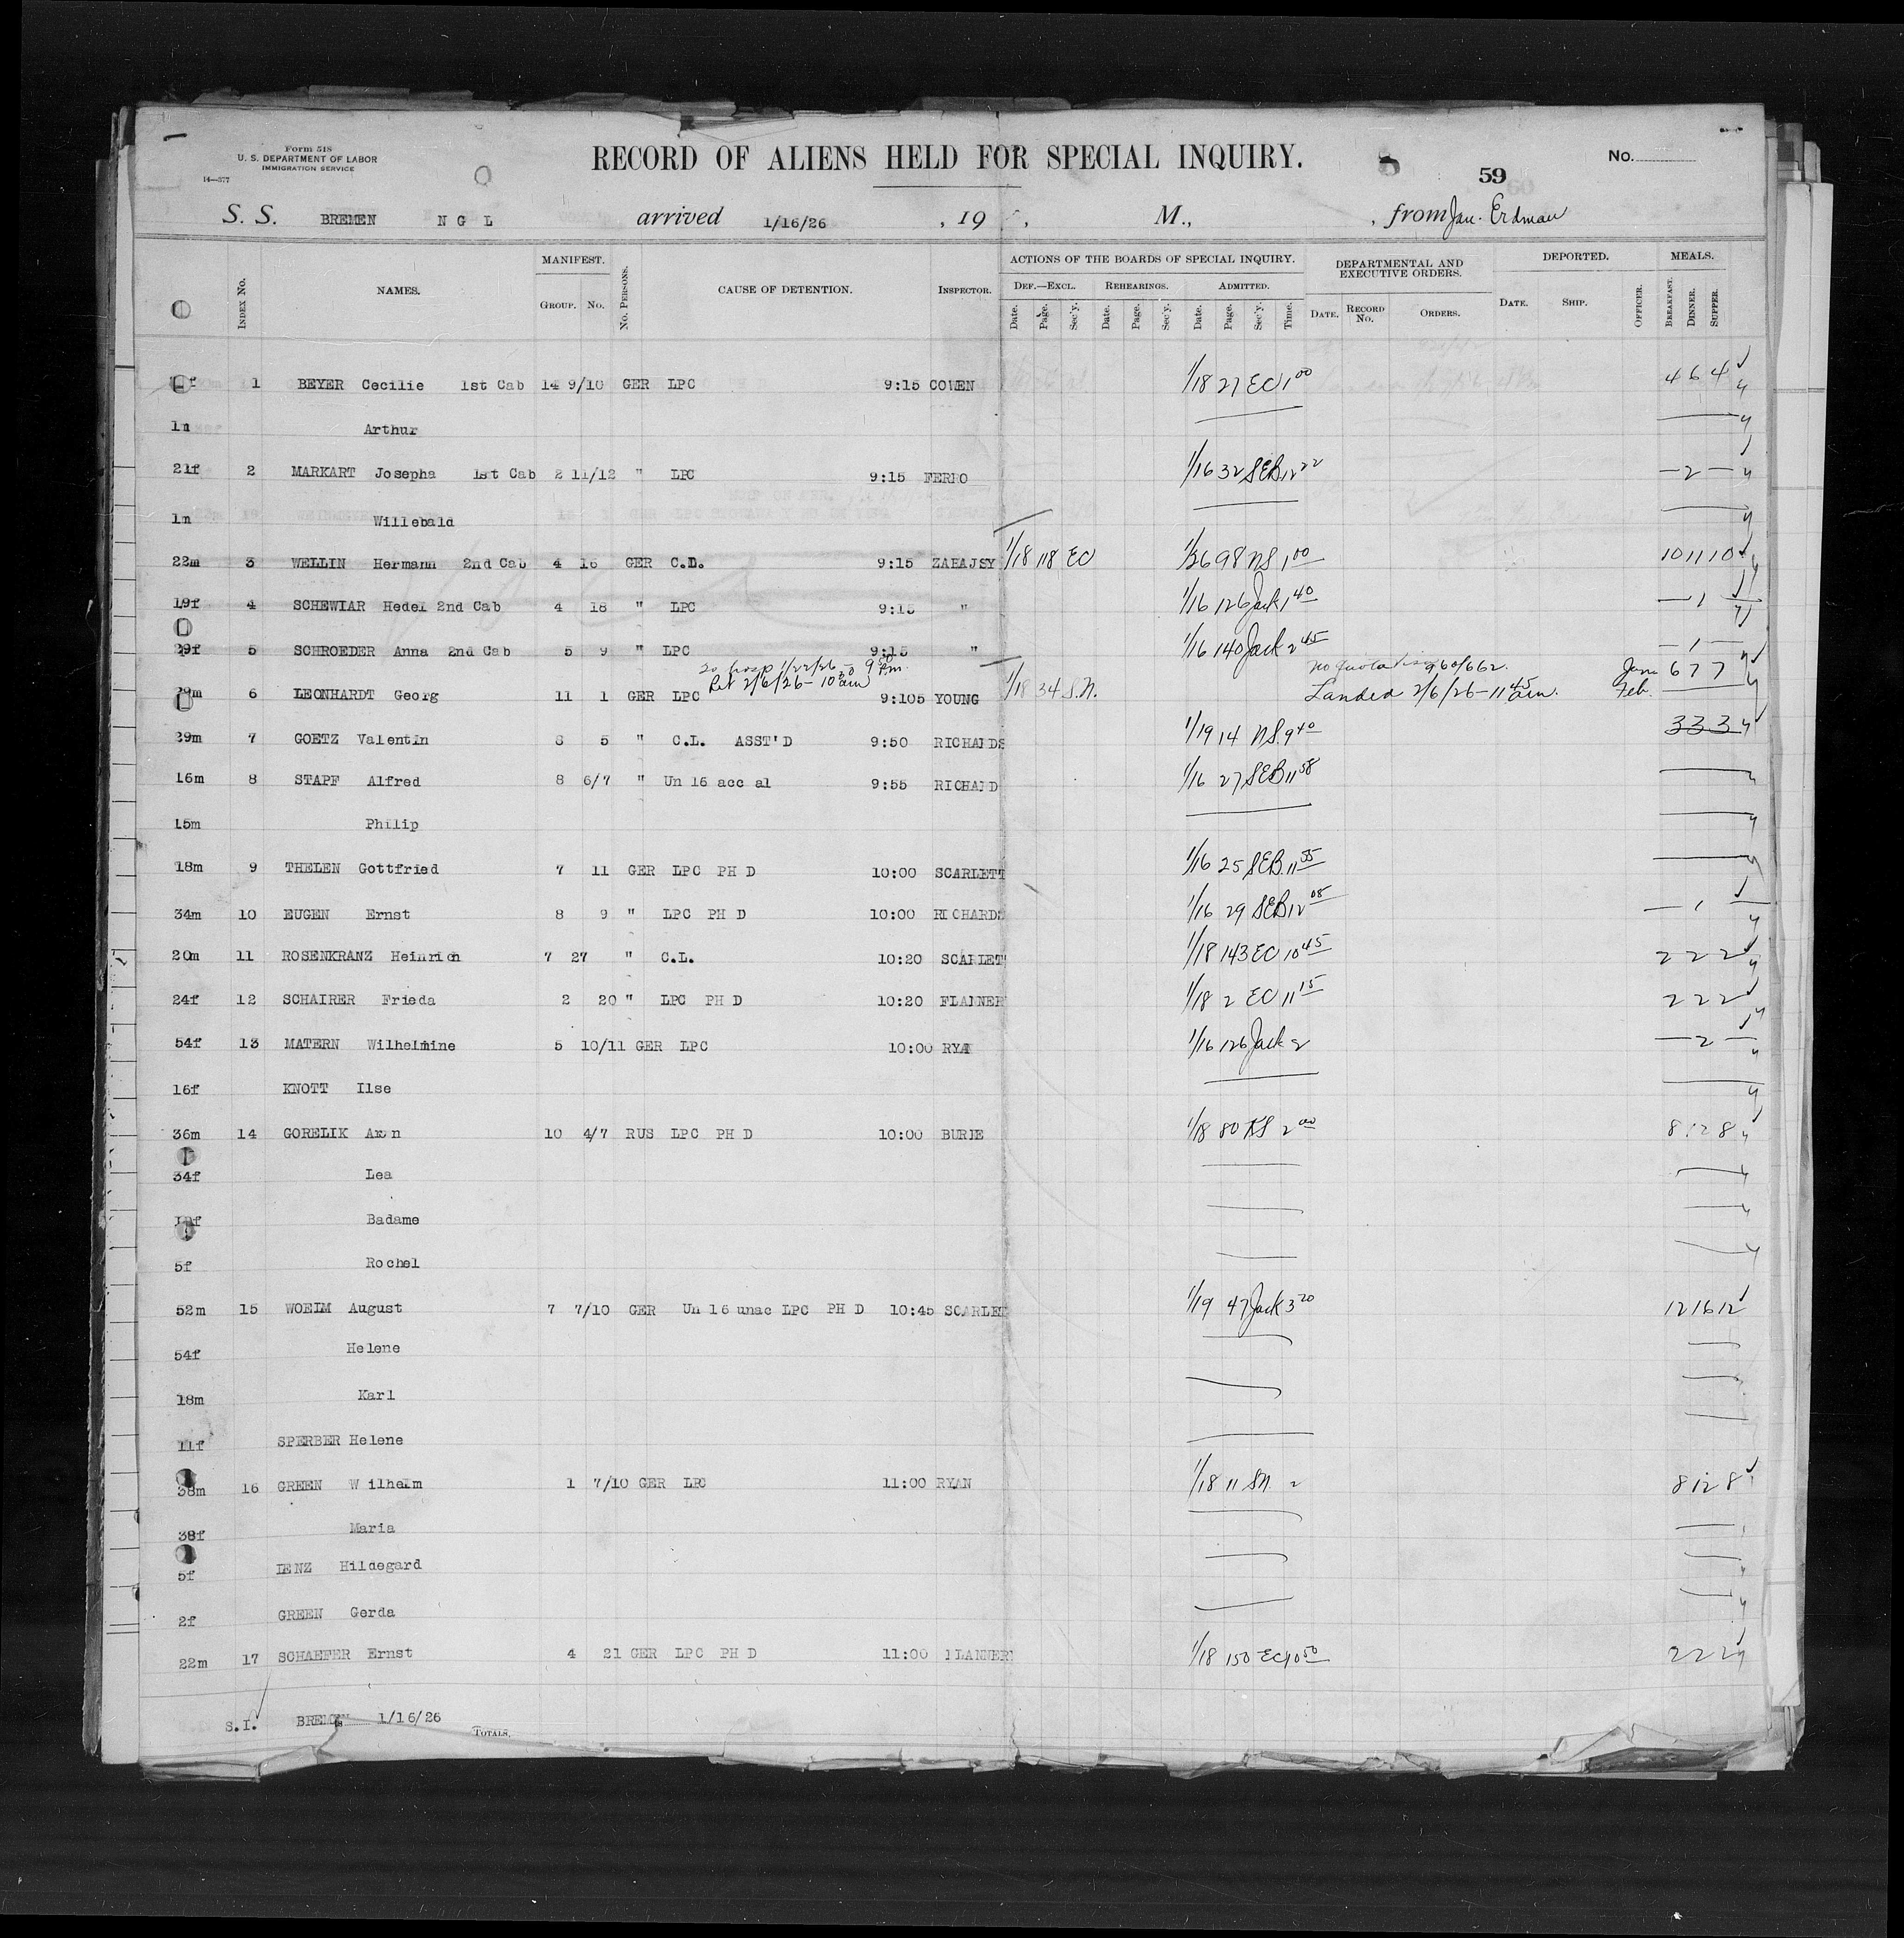 Form 518
U. S. DEPARTMENT OF LABOR
IMMIGRATION SERVICE
14—577
RECORD OF ALIENS HELD FOR SPECIAL INQUIRY.
59
No.
S. S. BREMEN N G L arrived 1/16/26 , 19 , M., , from Jan. Erdman
INDEX No. NAMES. MANIFEST. GROUP. No. No. PERSONS. CAUSE OF DETENTION. INSPECTOR. ACTIONS OF THE BOARDS OF SPECIAL INQUIRY. DEPARTMENTAL AND EXECUTIVE ORDERS. DEPORTED. MEALS.
DEF.—EXCL. REHEARINGS. ADMITTED.
Date. Page. Sec'y. Date. Page. Sec'y. Date. Page. Sec'y. Time. DATE. RECORD No. ORDERS. DATE. SHIP. OFFICER. BREAKFAST. DINNER. SUPPER.
1 BEYER Cecilie 1st Cab 14 9/10 GER LPC 9:15 COWEN 1/18 27 EC 1 00 4 6 4
1m Arthur
21f 2 MARKART Josepha 1st Cab 2 11/12 " LPC 9:15 FERRO 1/16 32 SEB 12 22 — 2 —
1m Willebald
22m 3 WELLIN Hermann 2nd Cab 4 16 GER C.D. 9:15 ZAHAJSY 1/18 118 EC 1/26 98 NS 1 00 10 11 10
19f 4 SCHEWIAR Hedel 2nd Cab 4 18 " LPC 9:15 " 1/16 126 Jack 1 40 — 1
29f 5 SCHROEDER Anna 2nd Cab 5 9 " LPC 9:15 " 1/16 140 Jack 2 45 — 1 —
To hosp 1/22/26 9 50 P.m. No Quota Visa 960/662. Jan 6 7 7
Ret 2/6/26 - 10 30 am
29m 6 LEONHARDT Georg 11 1 GER LPC 9:105 YOUNG 1/18 34 S.N. Landed 2/6/26 - 11 45 am. Feb.
29m 7 GOETZ Valentin 8 5 " C.L. ASST'D 9:50 RICHARDS 1/19 14 N.S. 9 40 3 3 3
16m 8 STAPF Alfred 8 6/7 " Un 16 acc al 9:55 RICHARD 1/16 27 SEB 11 58
15m Philip
18m 9 THELEN Gottfried 7 11 GER LPC PH D 10:00 SCARLETT 1/16 25 SEB. 11 55
34m 10 EUGEN Ernst 8 9 " LPC PH D 10:00 RICHARDS 1/16 29 SEB 12 08 — 1
20m 11 ROSENKRANZ Heinrich 7 27 " C.L. 10:20 SCARLET 1/18 143 EC 10 45 2 2 2
24f 12 SCHAIRER Frieda 2 20 " LPC PH D 10:20 FLANNER 1/18 2 EC 11 15 2 2 2
54f 13 MATERN Wilhelmine 5 10/11 GER LPC 10:00 RYAN 1/16 126 Jack 2 — 2 —
16f KNOTT Ilse
36m 14 GORELIK Aron 10 4/7 RUS LPC PH D 10:00 BURKE 1/18 80 KS 2 00 8 12 8
34f Lea
Badame
5f Rochel
52m 15 WOEIM August 7 7/10 GER Un 16 unac LPC PH D 10:45 SCARLET 1/19 47 Jack 3 20 12 16 12
54f Helene
18m Karl
11f SPERBER Helene
38m 16 GREEN Wilhelm 1 7/10 GER LPC 11:00 RYAN 1/18 11 SN. 2 8 12 8
38f Maria
5f LENZ Hildegard
2f GREEN Gerda
22m 17 SCHAEFER Ernst 4 21 GER LPC PH D 11:00 FLANNERY 1/18 150 EC 10 50 2 2 2
S.I. BREMEN 1/16/26
TOTALS.